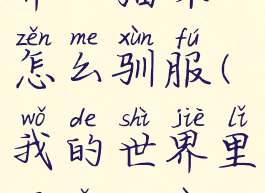 zěn me xùn fú
怎么驯服(
wǒ de shì jiè lǐ
我的世界里